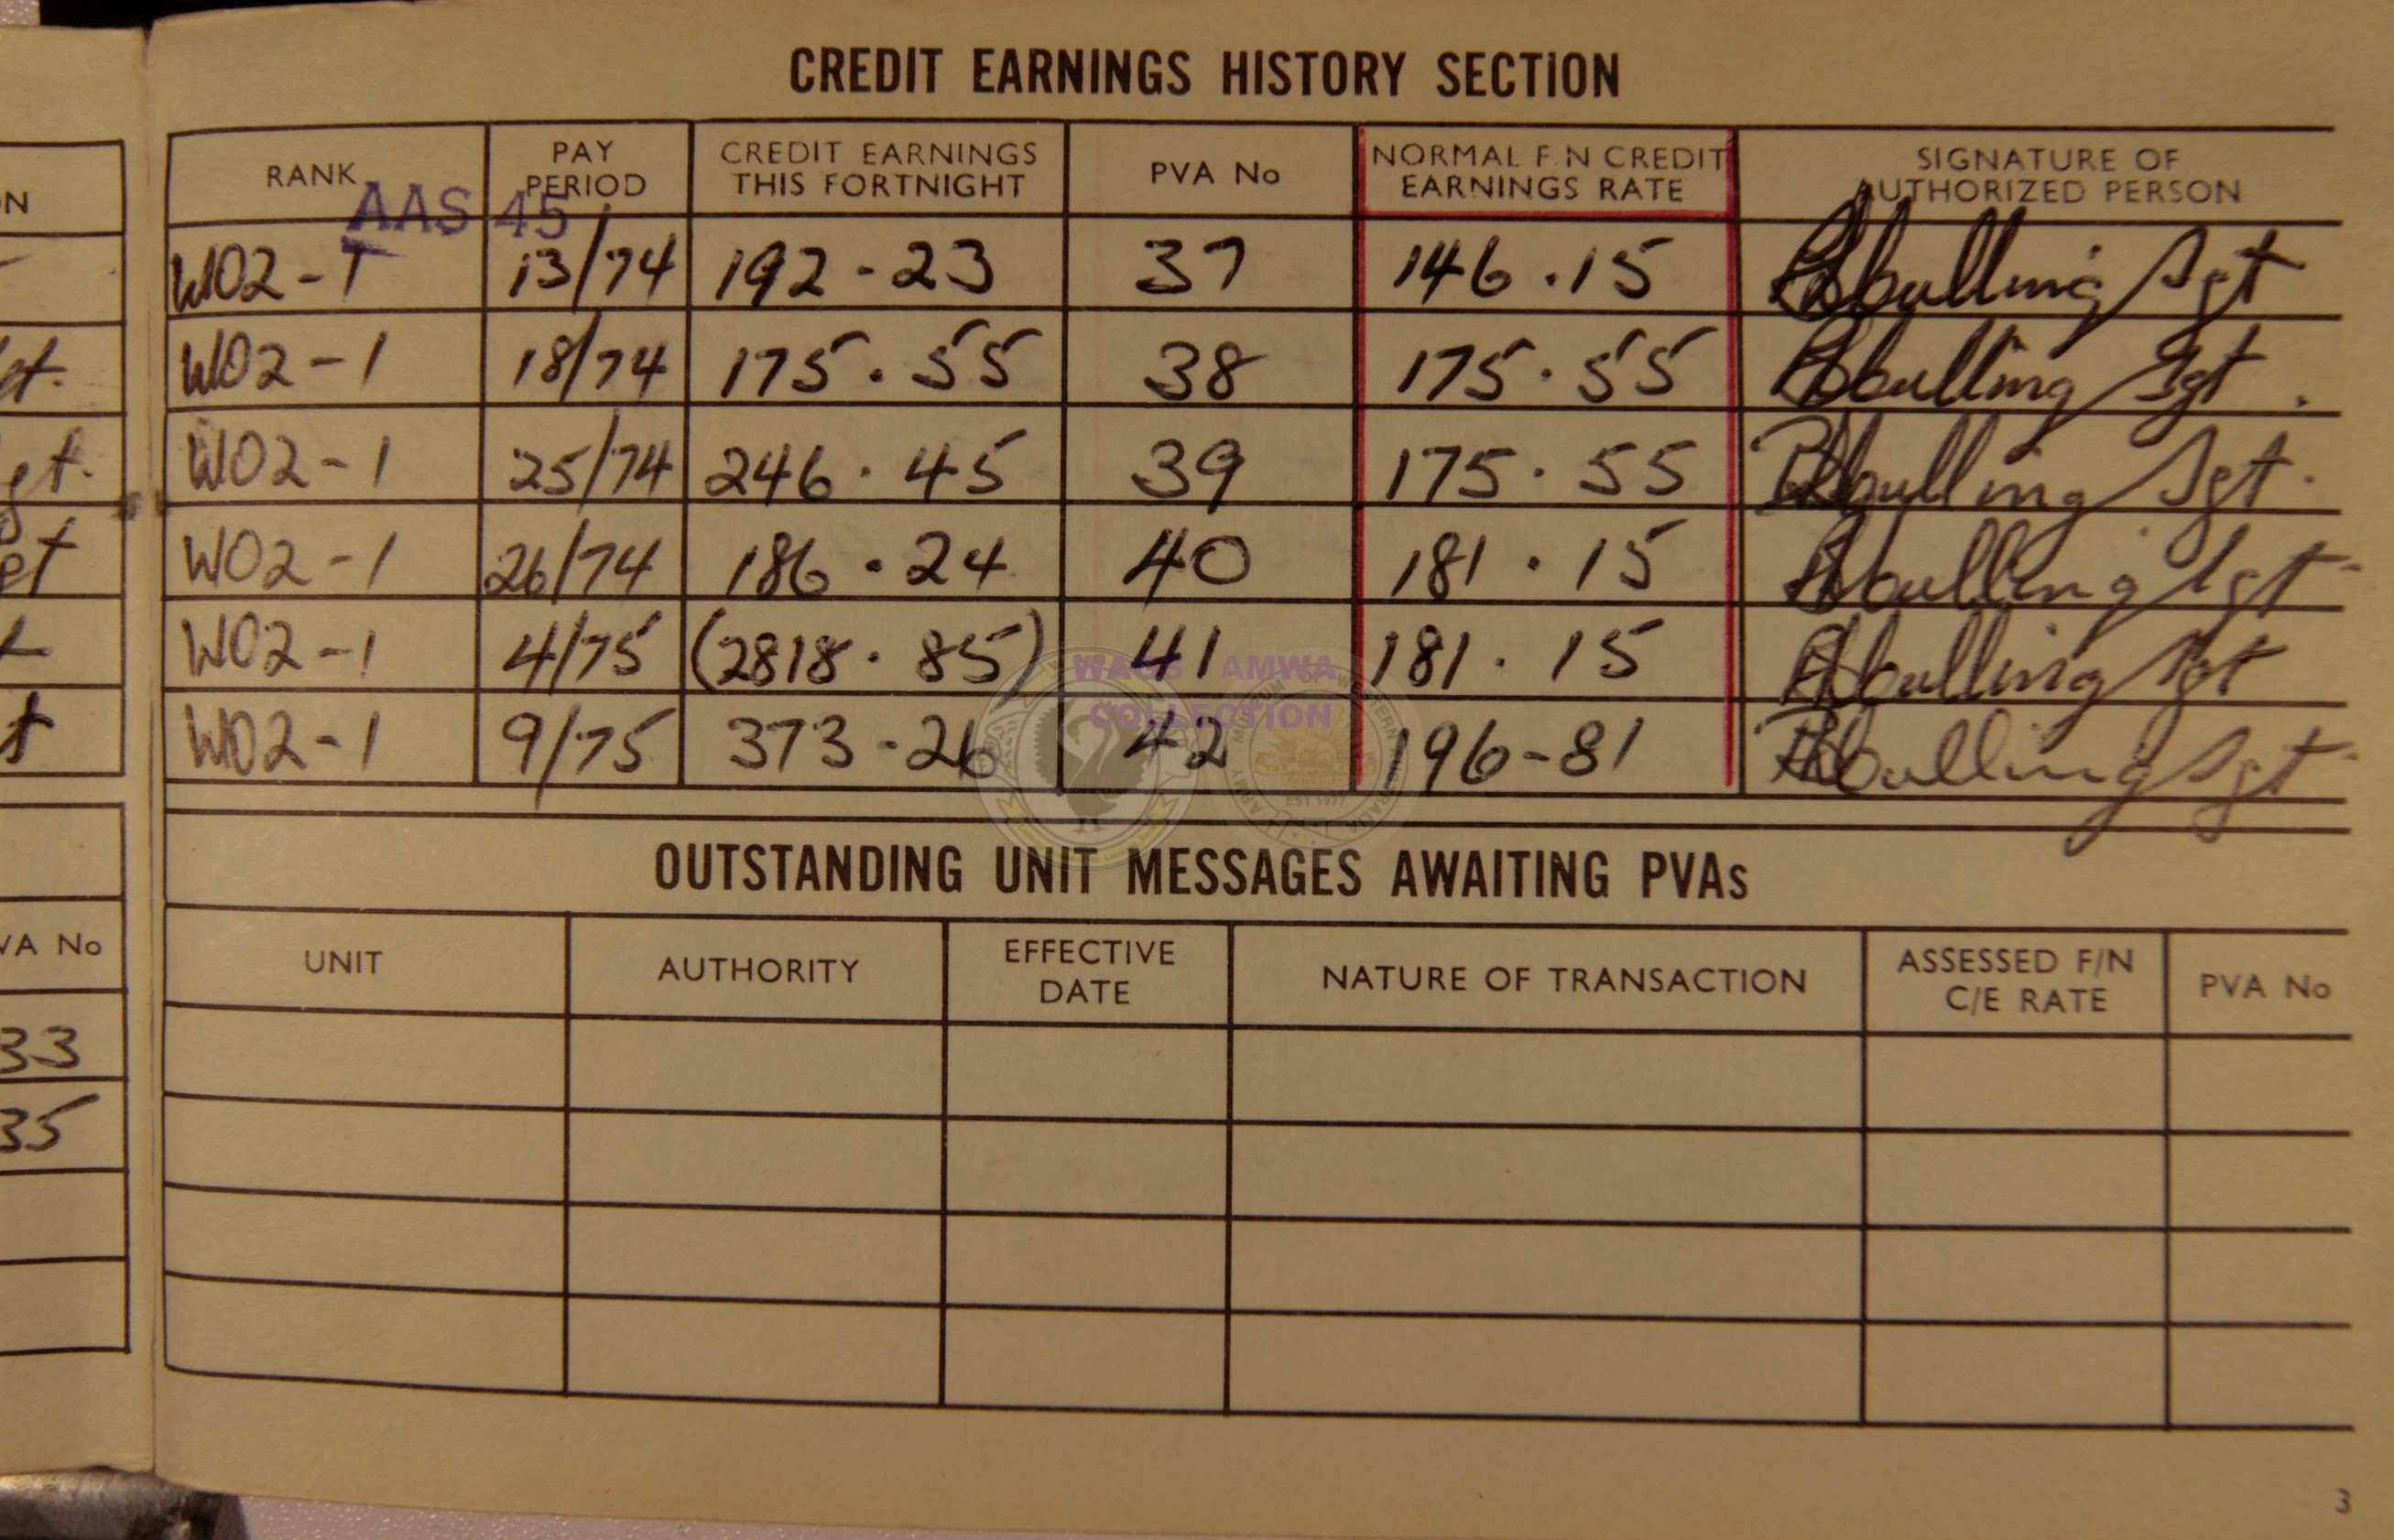 CREDIT EARNINGS HISTORY SECTION
RANK PAY PERIOD CREDIT EARNINGS THIS FORTNIGHT PVA No NORMAL F.N CREDIT EARNINGS RATE SIGNATURE OF AUTHORIZED PERSON
AAS 45
WO2-T 13/74 192-23 37 146.15 Sgt
WO2-1 18/74 175.55 38 175.55 Sgt.
WO2-1 25/74 246.45 39 175.55 Sgt.
WO2-1 26/74 186.24 40 181.15 Sgt
WO2-1 4/75 (2818.85) 41 181.15 Sgt
WO2-1 9/75 373-26 42 196-81 Sgt
WAGS AMWA
COLLECTION
OUTSTANDING UNIT MESSAGES AWAITING PVAs
UNIT AUTHORITY EFFECTIVE DATE NATURE OF TRANSACTION ASSESSED F/N C/E RATE PVA No
3
N
VA No
33
35